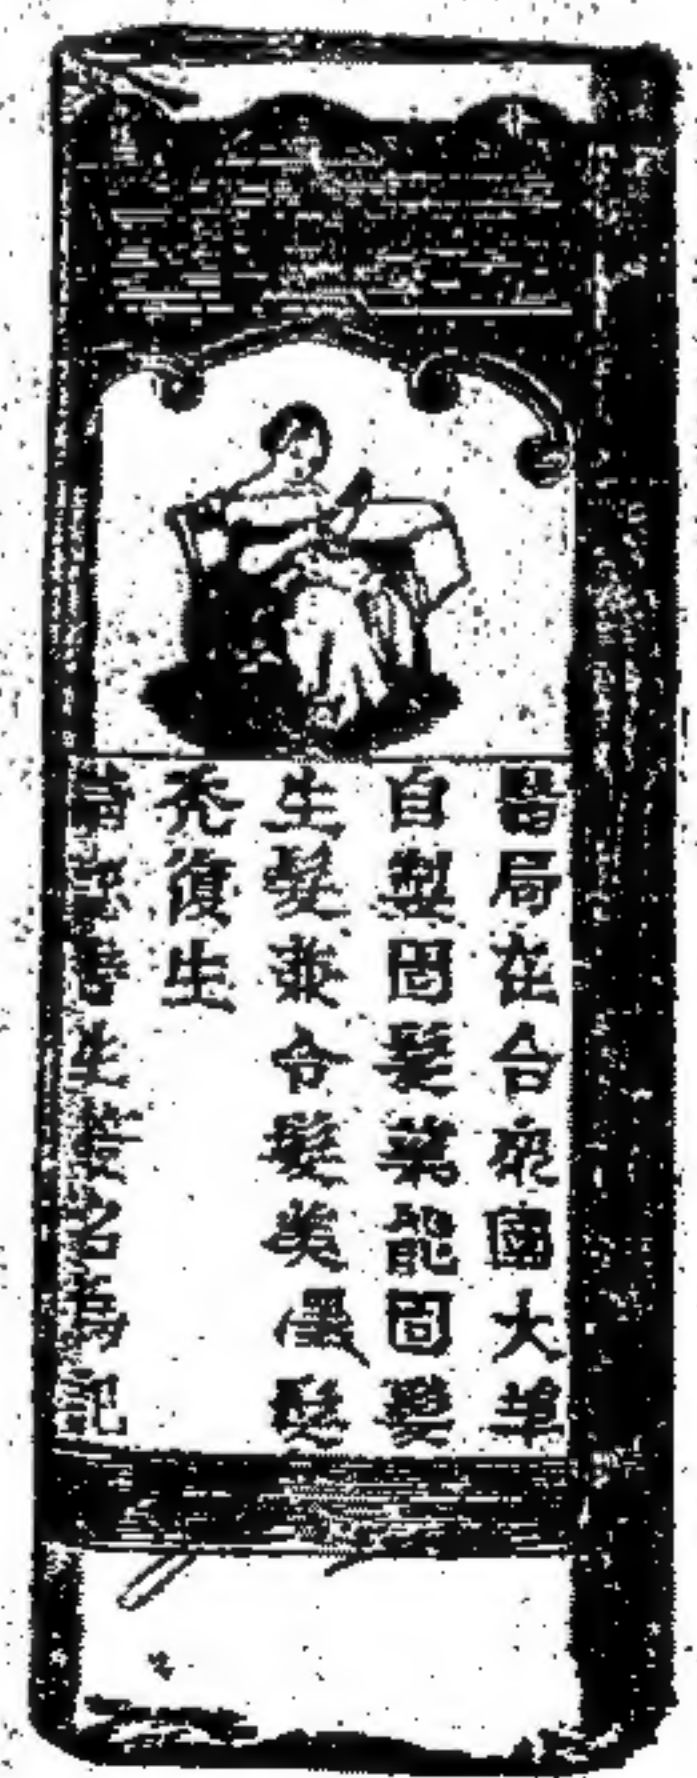 醫局在合衆國大埠
自製固髮藥能固髮
生髮兼令髮美澤髮
禿復生
者生黃名為記